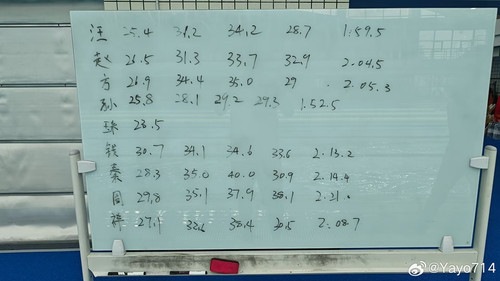 汪 25.4 31.2 34.2 28.7 1:59.5
赵 26.5 31.3 33.7 32.9 2.04.5
方 26.9 34.4 35.0 29 2.05.3
孙 25.8 28.1 29.2 29.3 1:52.5
张 28.5
钱 30.7 34.1 34.6 33.6 2.13.2
秦 28.3 35.0 40.0 30.9 2.14.4
周 29.8 35.1 37.9 38.1 2.21.
27.1 32.6 38.4 30.5 2:08.7
@Yayo714